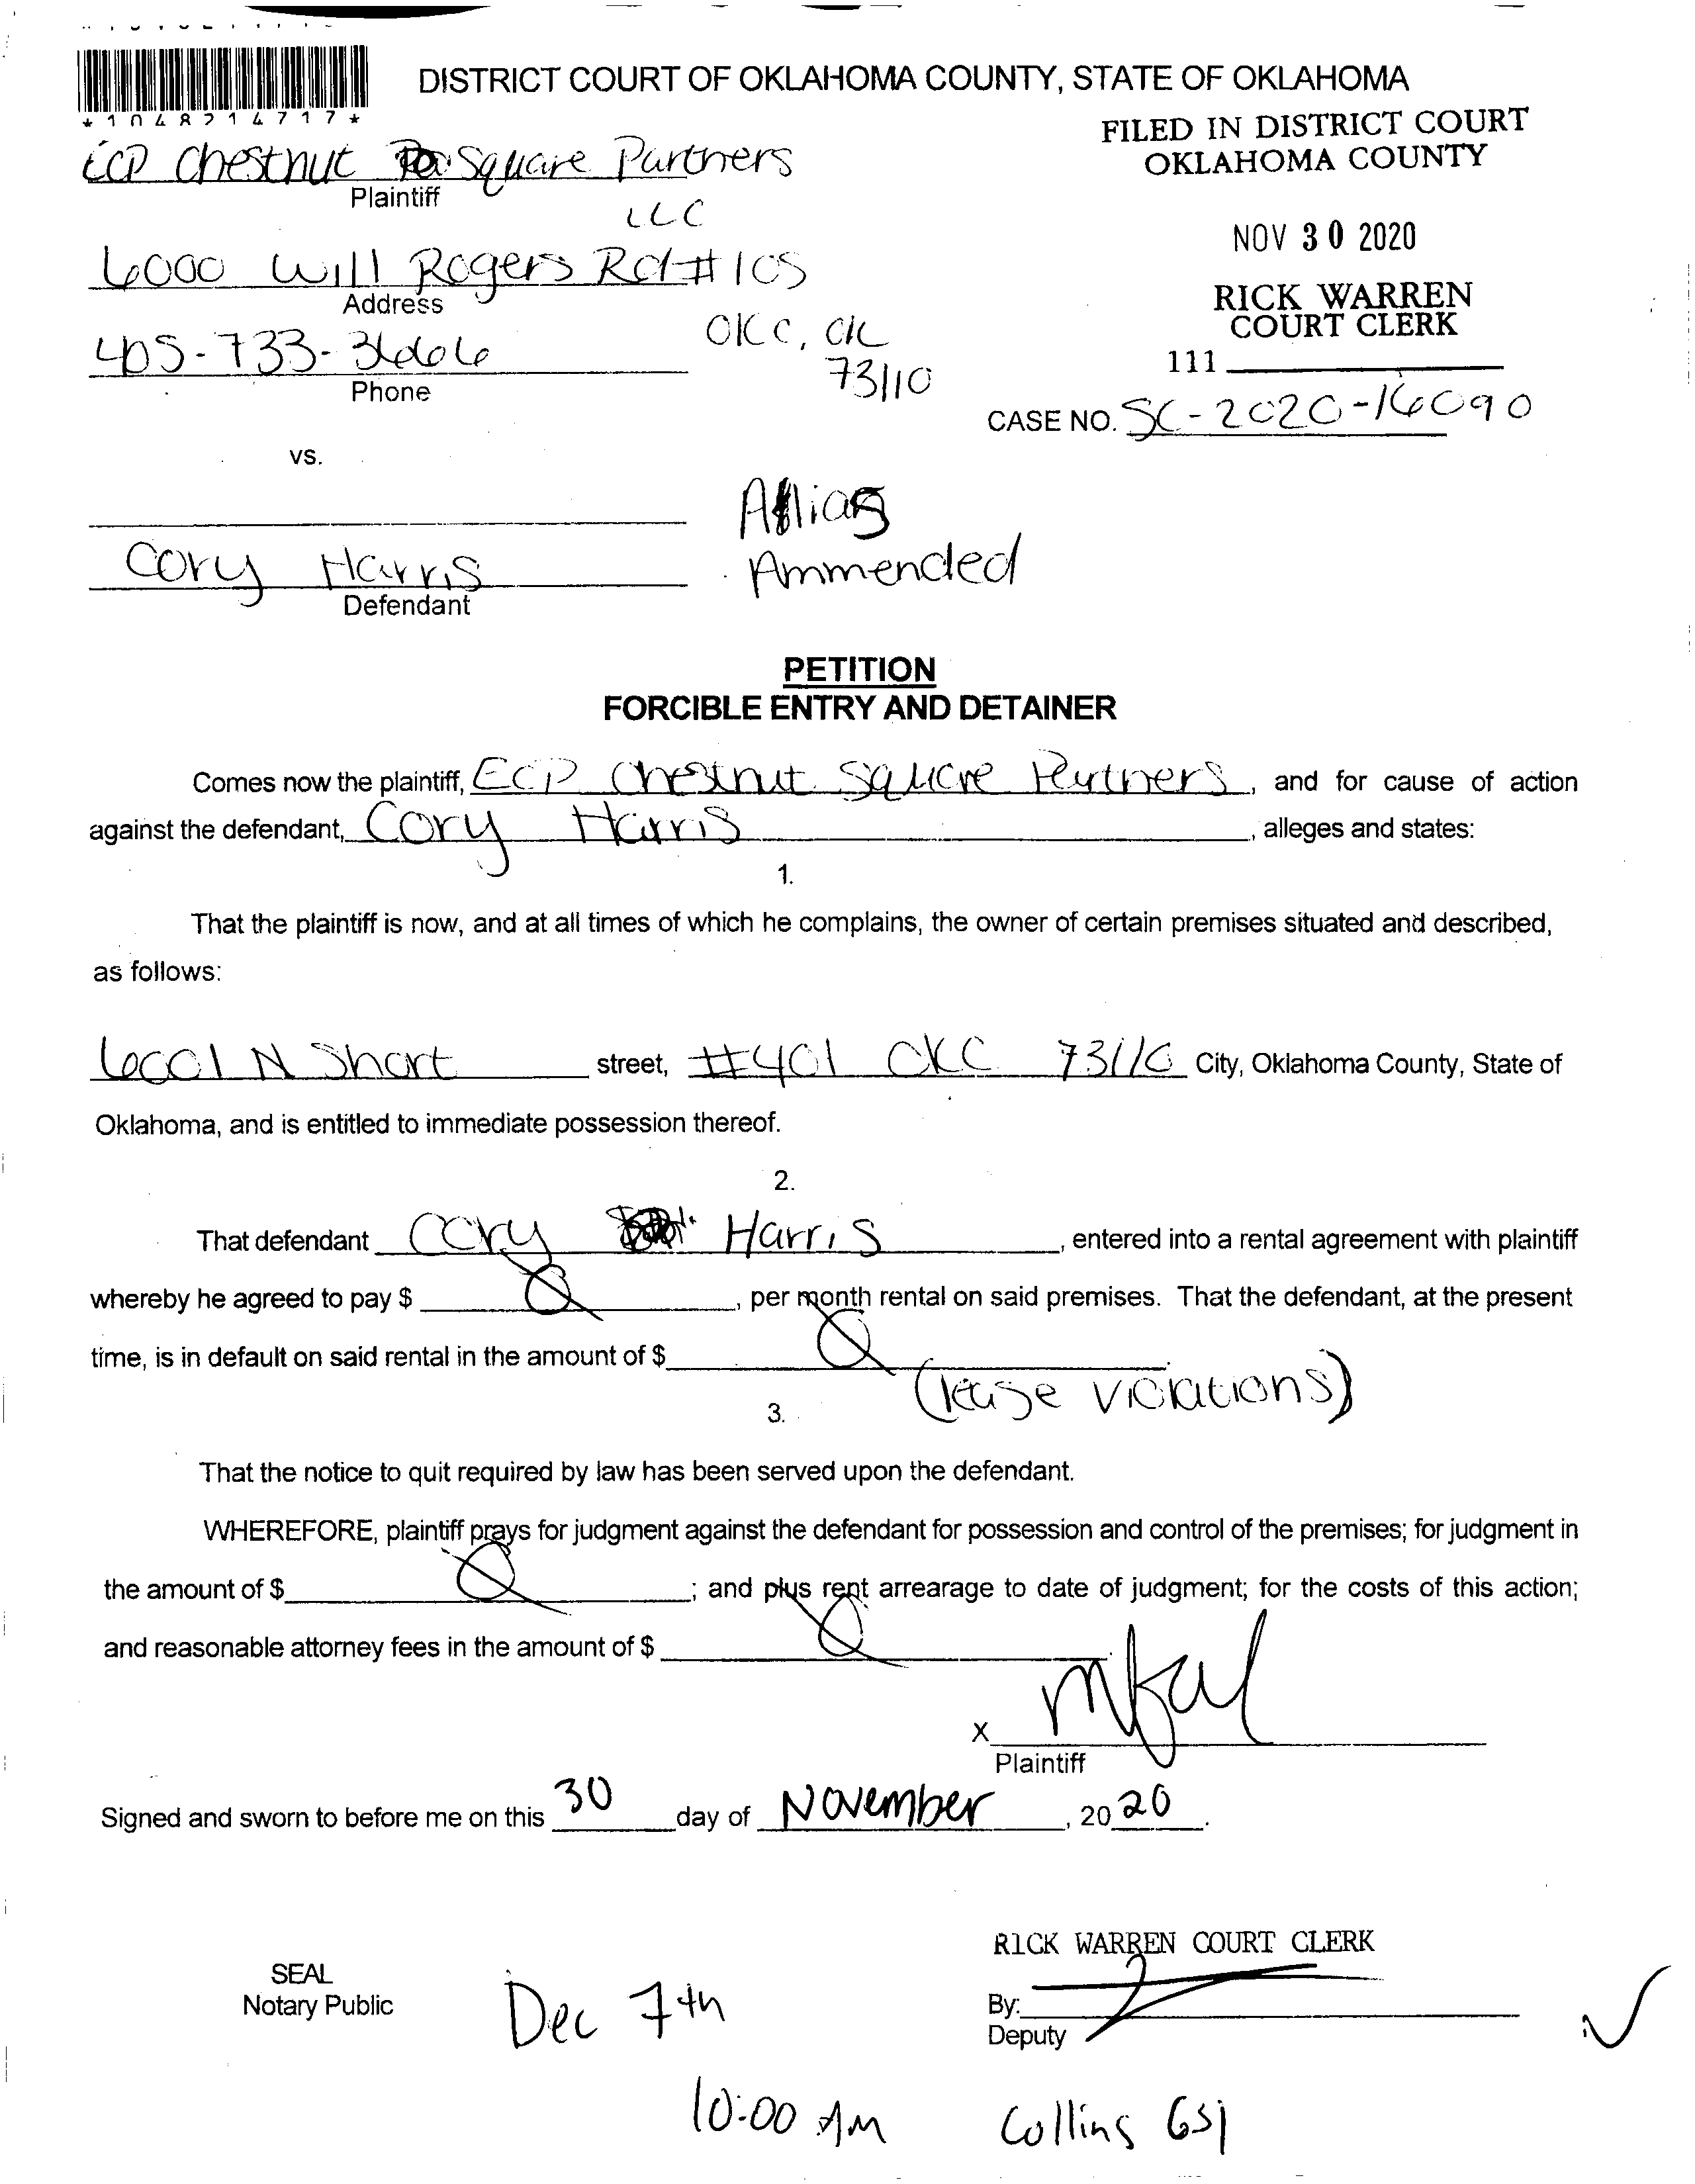 DISTRICT COURT OF OKLAHOMA COUNTY, STATE OF OKLAHOMA
*1048214717*
FILED IN DISTRICT COURT
OKLAHOMA COUNTY
ECP Chestnut Square Partners
Plaintiff
LLC
NOV 30 2020
6000 Will Rogers Rd #105
Address
RICK WARREN
COURT CLERK
OKC, OK
73110
405-733-3666
Phone
111
CASE NO. SC-2020-16090
vs.
Alias
Ammended
Cory Harris
Defendant
PETITION
FORCIBLE ENTRY AND DETAINER
Comes now the plaintiff, ECP Chestnut Square Partners, and for cause of action
against the defendant, Cory Harris, alleges and states:
1.
That the plaintiff is now, and at all times of which he complains, the owner of certain premises situated and described,
as follows:
6001 N Short street, #401 OKC 73110 City, Oklahoma County, State of
Oklahoma, and is entitled to immediate possession thereof.
2.
That defendant Cory Harris, entered into a rental agreement with plaintiff
whereby he agreed to pay $ 0, per month rental on said premises. That the defendant, at the present
time, is in default on said rental in the amount of $ 0.
(lease violations)
3.
That the notice to quit required by law has been served upon the defendant.
WHEREFORE, plaintiff prays for judgment against the defendant for possession and control of the premises; for judgment in
the amount of $ 0; and plus rent arrearage to date of judgment; for the costs of this action;
and reasonable attorney fees in the amount of $ 0.
X
Plaintiff
Signed and sworn to before me on this 30 day of November, 2020.
RICK WARREN COURT CLERK
SEAL
Notary Public
By:
Deputy
Dec 7th
10:00 AM
Collins 651